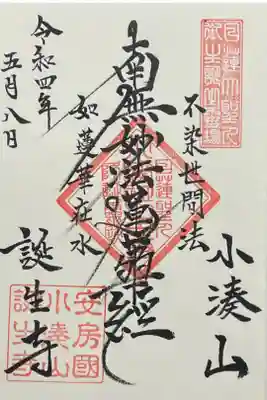 小湊山
不染世間法
南無妙法蓮華經
如蓮華在水
令和四年
五月八日
誕生寺
安房國
小湊山
誕生寺